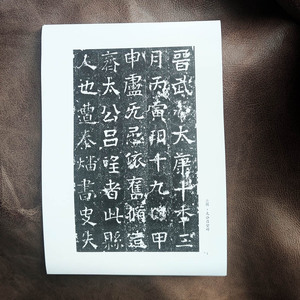 晉武帝太康十秊三
月丙寅朔十九日甲
申盧无忌依舊脩造
齊太公呂望者此縣
人也遭秦燔書史失